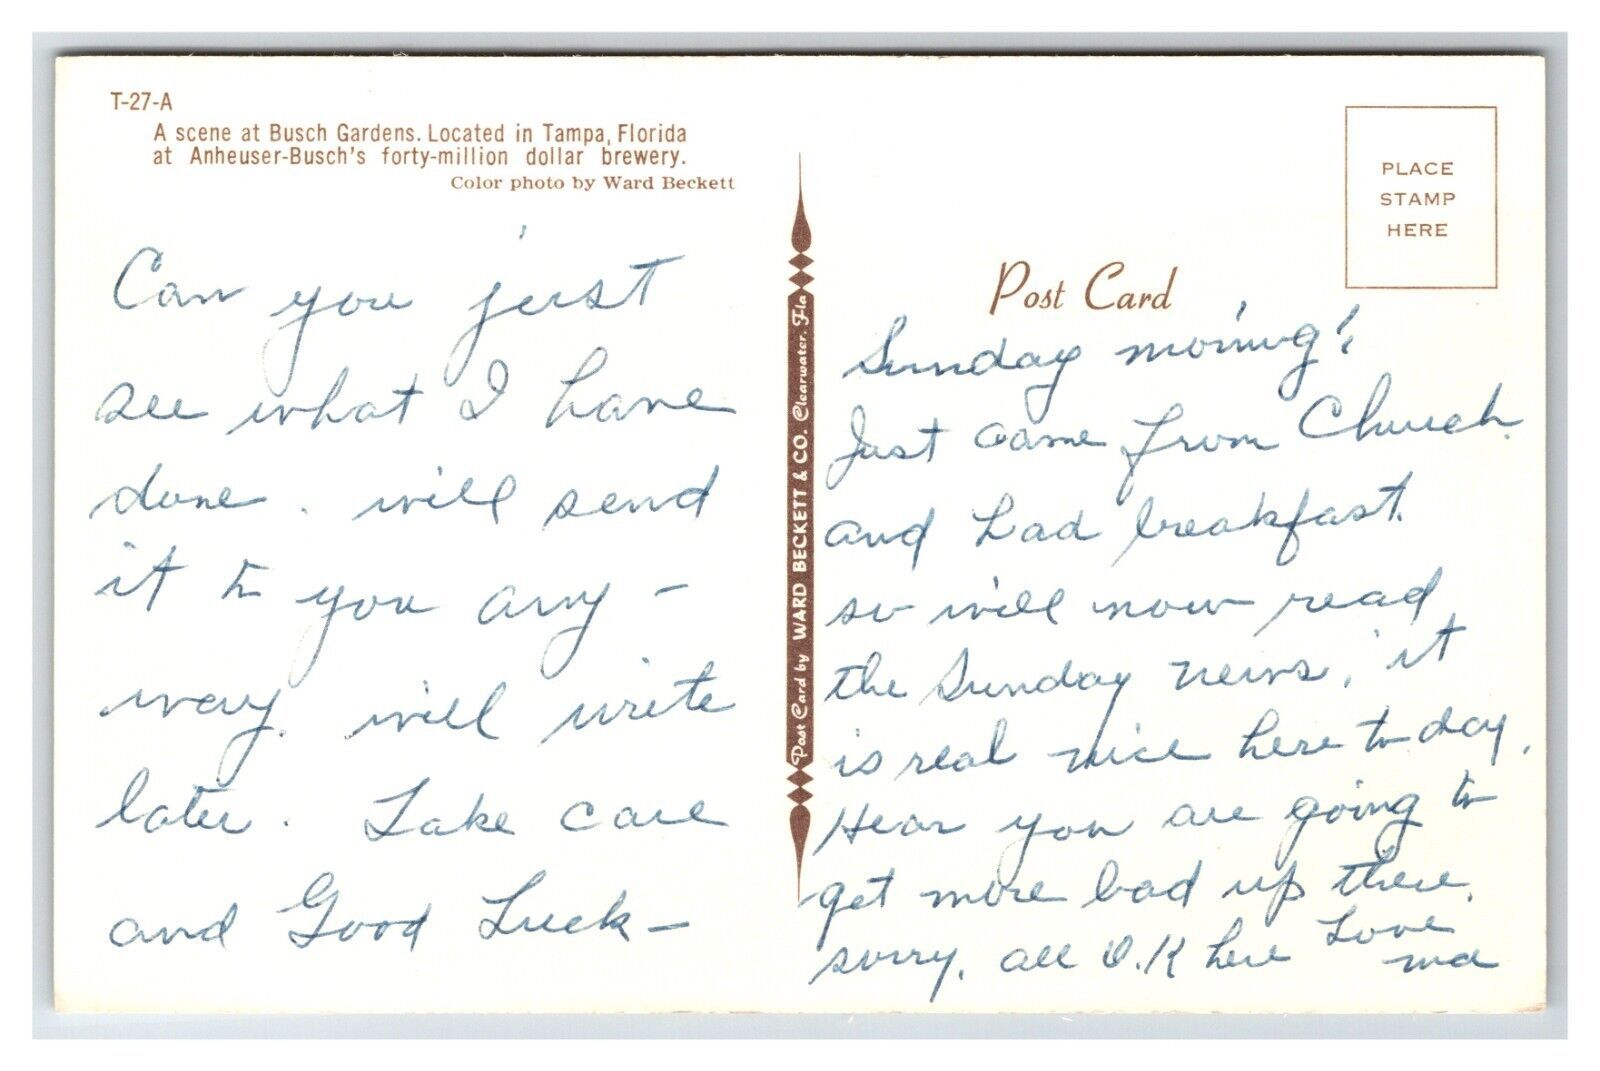 T-27-A
A scene at Busch Gardens. Located in Tampa, Florida
at Anheuser-Busch's forty-million dollar brewery.
Color photo by Ward Beckett
Can you just
see what I have
done. will send
it to you any-
way. will write
later. Take care
and Good Luck-
Post Card by WARD BECKETT & CO. Clearwater, Fla
PLACE
STAMP
HERE
Post Card
Sunday morning!
Just came from Church.
and had breakfast.
so will now read
the Sunday news, it
is real nice here to day.
Hear you are going to
get more bad up there.
sorry, all O.K here Love
ma